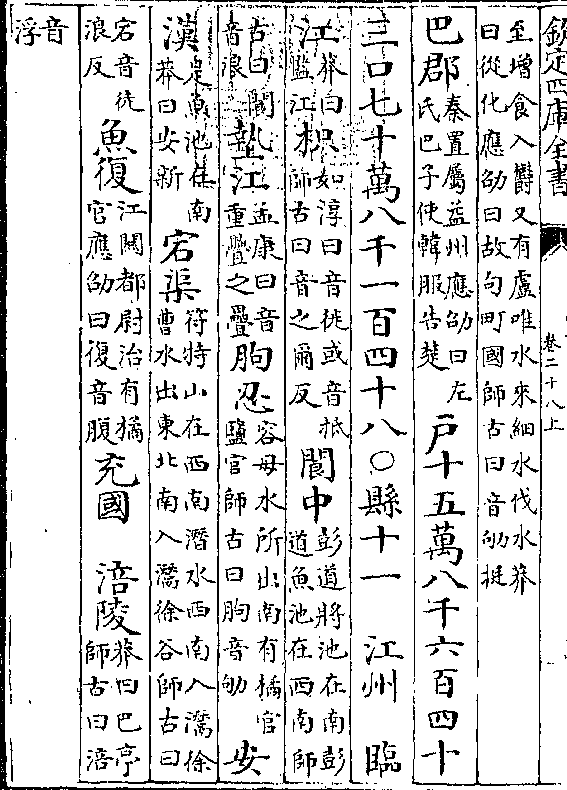 欽定四庫全書
卷二十八上
至增食入鬱又有盧唯水來細水伐水莽曰從化應劭曰故句町國師古曰音劬挺
巴郡秦置屬益州應劭曰左氏巴子使韓服告楚戶十五萬八千六百四十
三口七十萬八千一百四十八○縣十一 江州 臨
江莽曰監江枳如淳曰音徙或音抵師古曰音之爾反閬中彭道將池在南彭道魚池在西南師
古曰閬音浪墊江孟康曰音重疊之疊朐忍容毋水所出南有橘官鹽官師古曰朐音劬安
漢是魚池在南莽曰安新宕渠符特山在西南潛水西南入灊徐曹水出東北南入灊徐谷師古曰
宕音徒浪反魚復江關都尉治有橘官應劭曰復音腹充國 涪陵莽曰巴亭師古曰涪
音浮